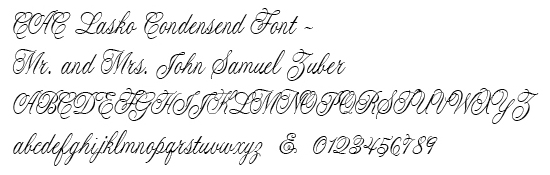 CAC Lasko Condensend Font ~
Mr. and Mrs. John Samuel Zuber
ABCDEFGHIJKLMNOPQRSTUVWXYZ
abcdefghijklmnopqrstuvwxyz & 0123456789